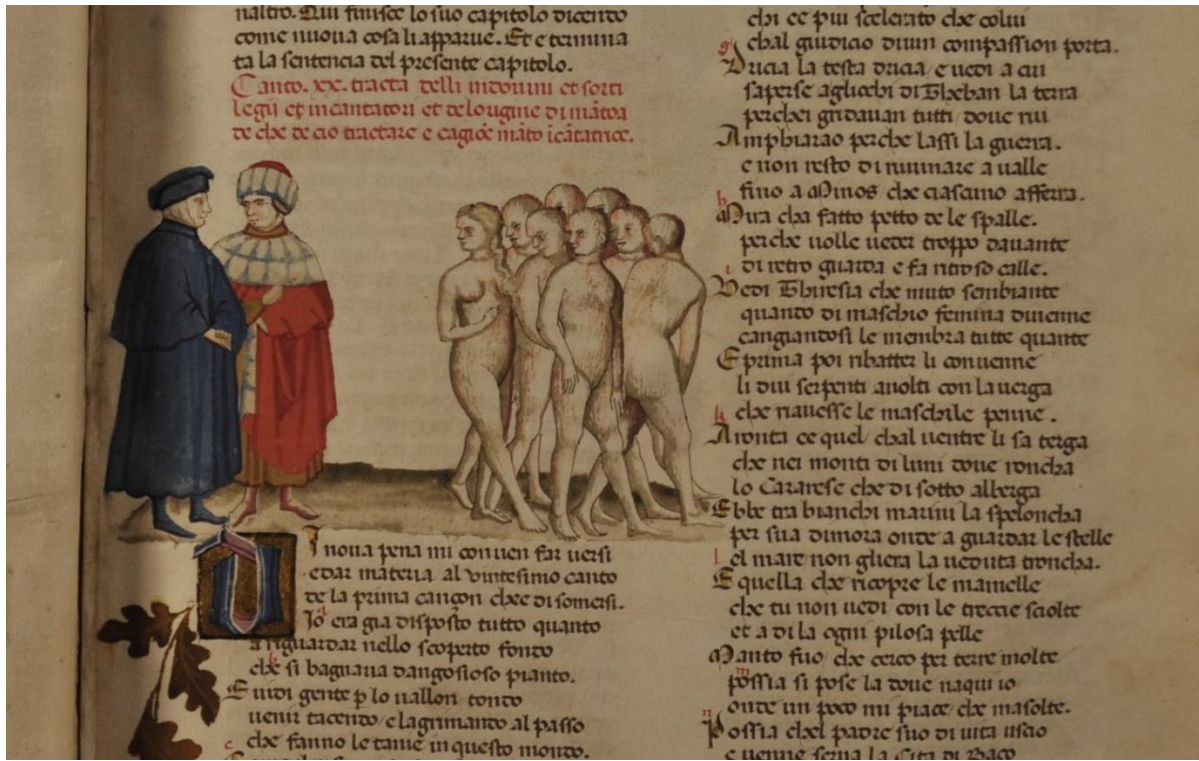 naltro. Qui finisce lo suo capitolo dicendo
come nuova cosa li apparue. Et e termina
ta la sentencia del presente capitolo.
Canto. xx. tracta delli indouini et sorti
legii et incantatori et de lo rigine di mãtoa
de che de cio tractare e cagiõe mãto icãtatrice.
I noua pena mi conuen far uersi
e dar materia al vintesimo canto
de la prima cançon chee di somersi.
Io era gia disposto tutto quanto
a riguardar nello scoperto fondo
che si bagnaua dangosioso pianto.
E uidi gente p lo uallon tondo
uenir tacendo e lagrimando al passo
c che fanno le tanie in questo mondo.
chi ce piu scelerato che colui
g chal giudicio diuin compassion porta.
Dricia la testa dricia e uedi a cui
saperse agliochi di Theban la terra
perchei gridauan tutti doue rui
Amphiarao perche lassi la guerra.
e non resto di ruuinare a ualle
fino a Minos che ciascuno afferra.
h
Mira cha fatto petto de le spalle.
perche uolle ueder troppo dauante
i di retro guarda e fa ritroso calle.
Vedi Thiresia che muto sembiante
quando di maschio femina diuenne
cangiandosi le membra tutte quante
E prima poi ribatter li conuenne
li dui serpenti auolti con la uerga
k che riauesse le maschile penne.
Aronta ce quel chal uentre li sa terga
che nei monti di luni doue roncha
lo Cararese che di sotto alberga
Ebbe tra bianchi marmi la speloncha
per sua dimora onde a guardar le stelle
l el mare non gliera la ueduta troncha.
E quella che ricopre le mamelle
che tu non uedi con le treccie sciolte
et a di la ogni pilosa pelle
Manto fuo che cerco per terre molte
m
possia si pose la doue naqui io
onde un poco mi piace che masolte.
n
Possia chel padre suo di uita uscio
e uenne serua la Cita di Baco